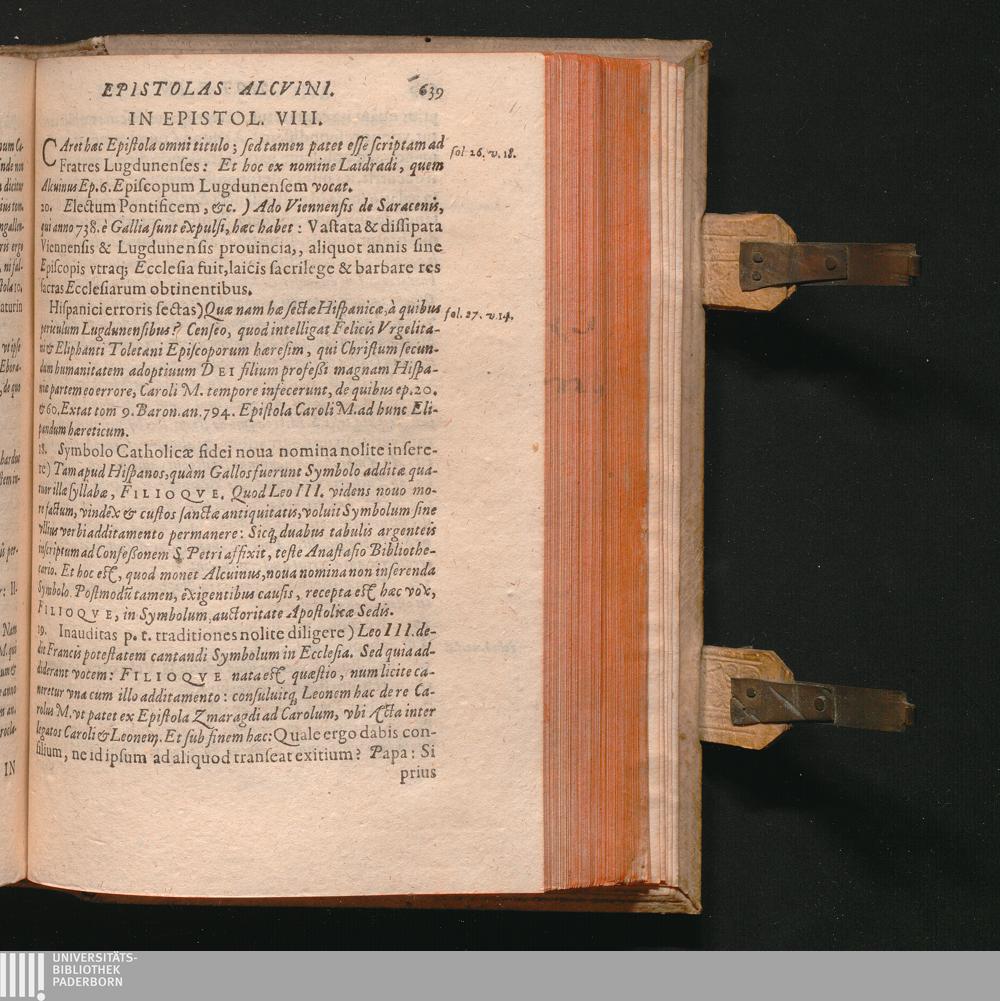 EPISTOLAS ALCVINI. 639
IN EPISTOL. VIII.
CAret hæc Epistola omni titulo; sed tamen patet esse scriptam ad
Fratres Lugdunenses: Et hoc ex nomine Laidradi, quem
Alcuinus Ep. 6. Episcopum Lugdunensem vocat.
fol. 26. v. 18.
20. Electum Pontificem, &c. ) Ado Viennensis de Saracenis,
qui anno 738. è Gallia sunt expulsi, hæc habet: Vastata & dissipata
Viennensis & Lugdunensis prouincia,, aliquot annis sine
Episcopis vtraq; Ecclesia fuit, laicis sacrilege & barbare res
sacras Ecclesiarum obtinentibus.
Hispanici erroris sectas) Quæ nam hæ sectæ Hispanicæ, à quibus
fol. 27. v. 14.
periculum Lugdunensibus? Censeo, quod intelligat Felicis Vrgelita-
ni & Eliphanti Toletani Episcoporum hæresim, qui Christum secun-
dum humanitatem adoptiuum DEI filium professi magnam Hispa-
niæ partem eo errore, Caroli M. tempore infecerunt, de quibus ep. 20.
& 60. Extat tom 9. Baron. an. 794. Epistola Caroli M. ad hunc Eli-
pandum hæreticum.
18. Symbolo Catholicæ fidei noua nomina nolite insere-
re) Tam apud Hispanos, quàm Gallos fuerunt Symbolo additæ qua-
tuor illæ syllabæ, FILIOQVE. Quod Leo III. videns nouo mo-
re factum, vindex & custos sanctæ antiquitatis, voluit Symbolum sine
vllius verbi additamento permanere: Sicq; duabus tabulis argenteis
inscriptum ad Confessionem S. Petri affixit, teste Anastasio Bibliothe-
cario. Et hoc est, quod monet Alcuinus, noua nomina non inserenda
Symbolo. Postmodū tamen, exigentibus causis, recepta est hæc vox,
FILIOQVE, in Symbolum, auctoritate Apostolicæ Sedis.
19. Inauditas p. t. traditiones nolite diligere) Leo III. de-
dit Francis potestatem cantandi Symbolum in Ecclesia. Sed quia ad-
diderant vocem: FILIOQVE nata est quæstio, num licite ca-
neretur vna cum illo additamento: consuluitq; Leonem hac de re Ca-
rolus M. vt patet ex Epistola Zmaragdi ad Carolum, vbi Acta inter
legatos Caroli & Leonem. Et sub finem hæc: Quale ergo dabis con-
silium, ne id ipsum ad aliquod transeat exitium? Papa: Si
prius
IN
UNIVERSITÄTS-
BIBLIOTHEK
PADERBORN